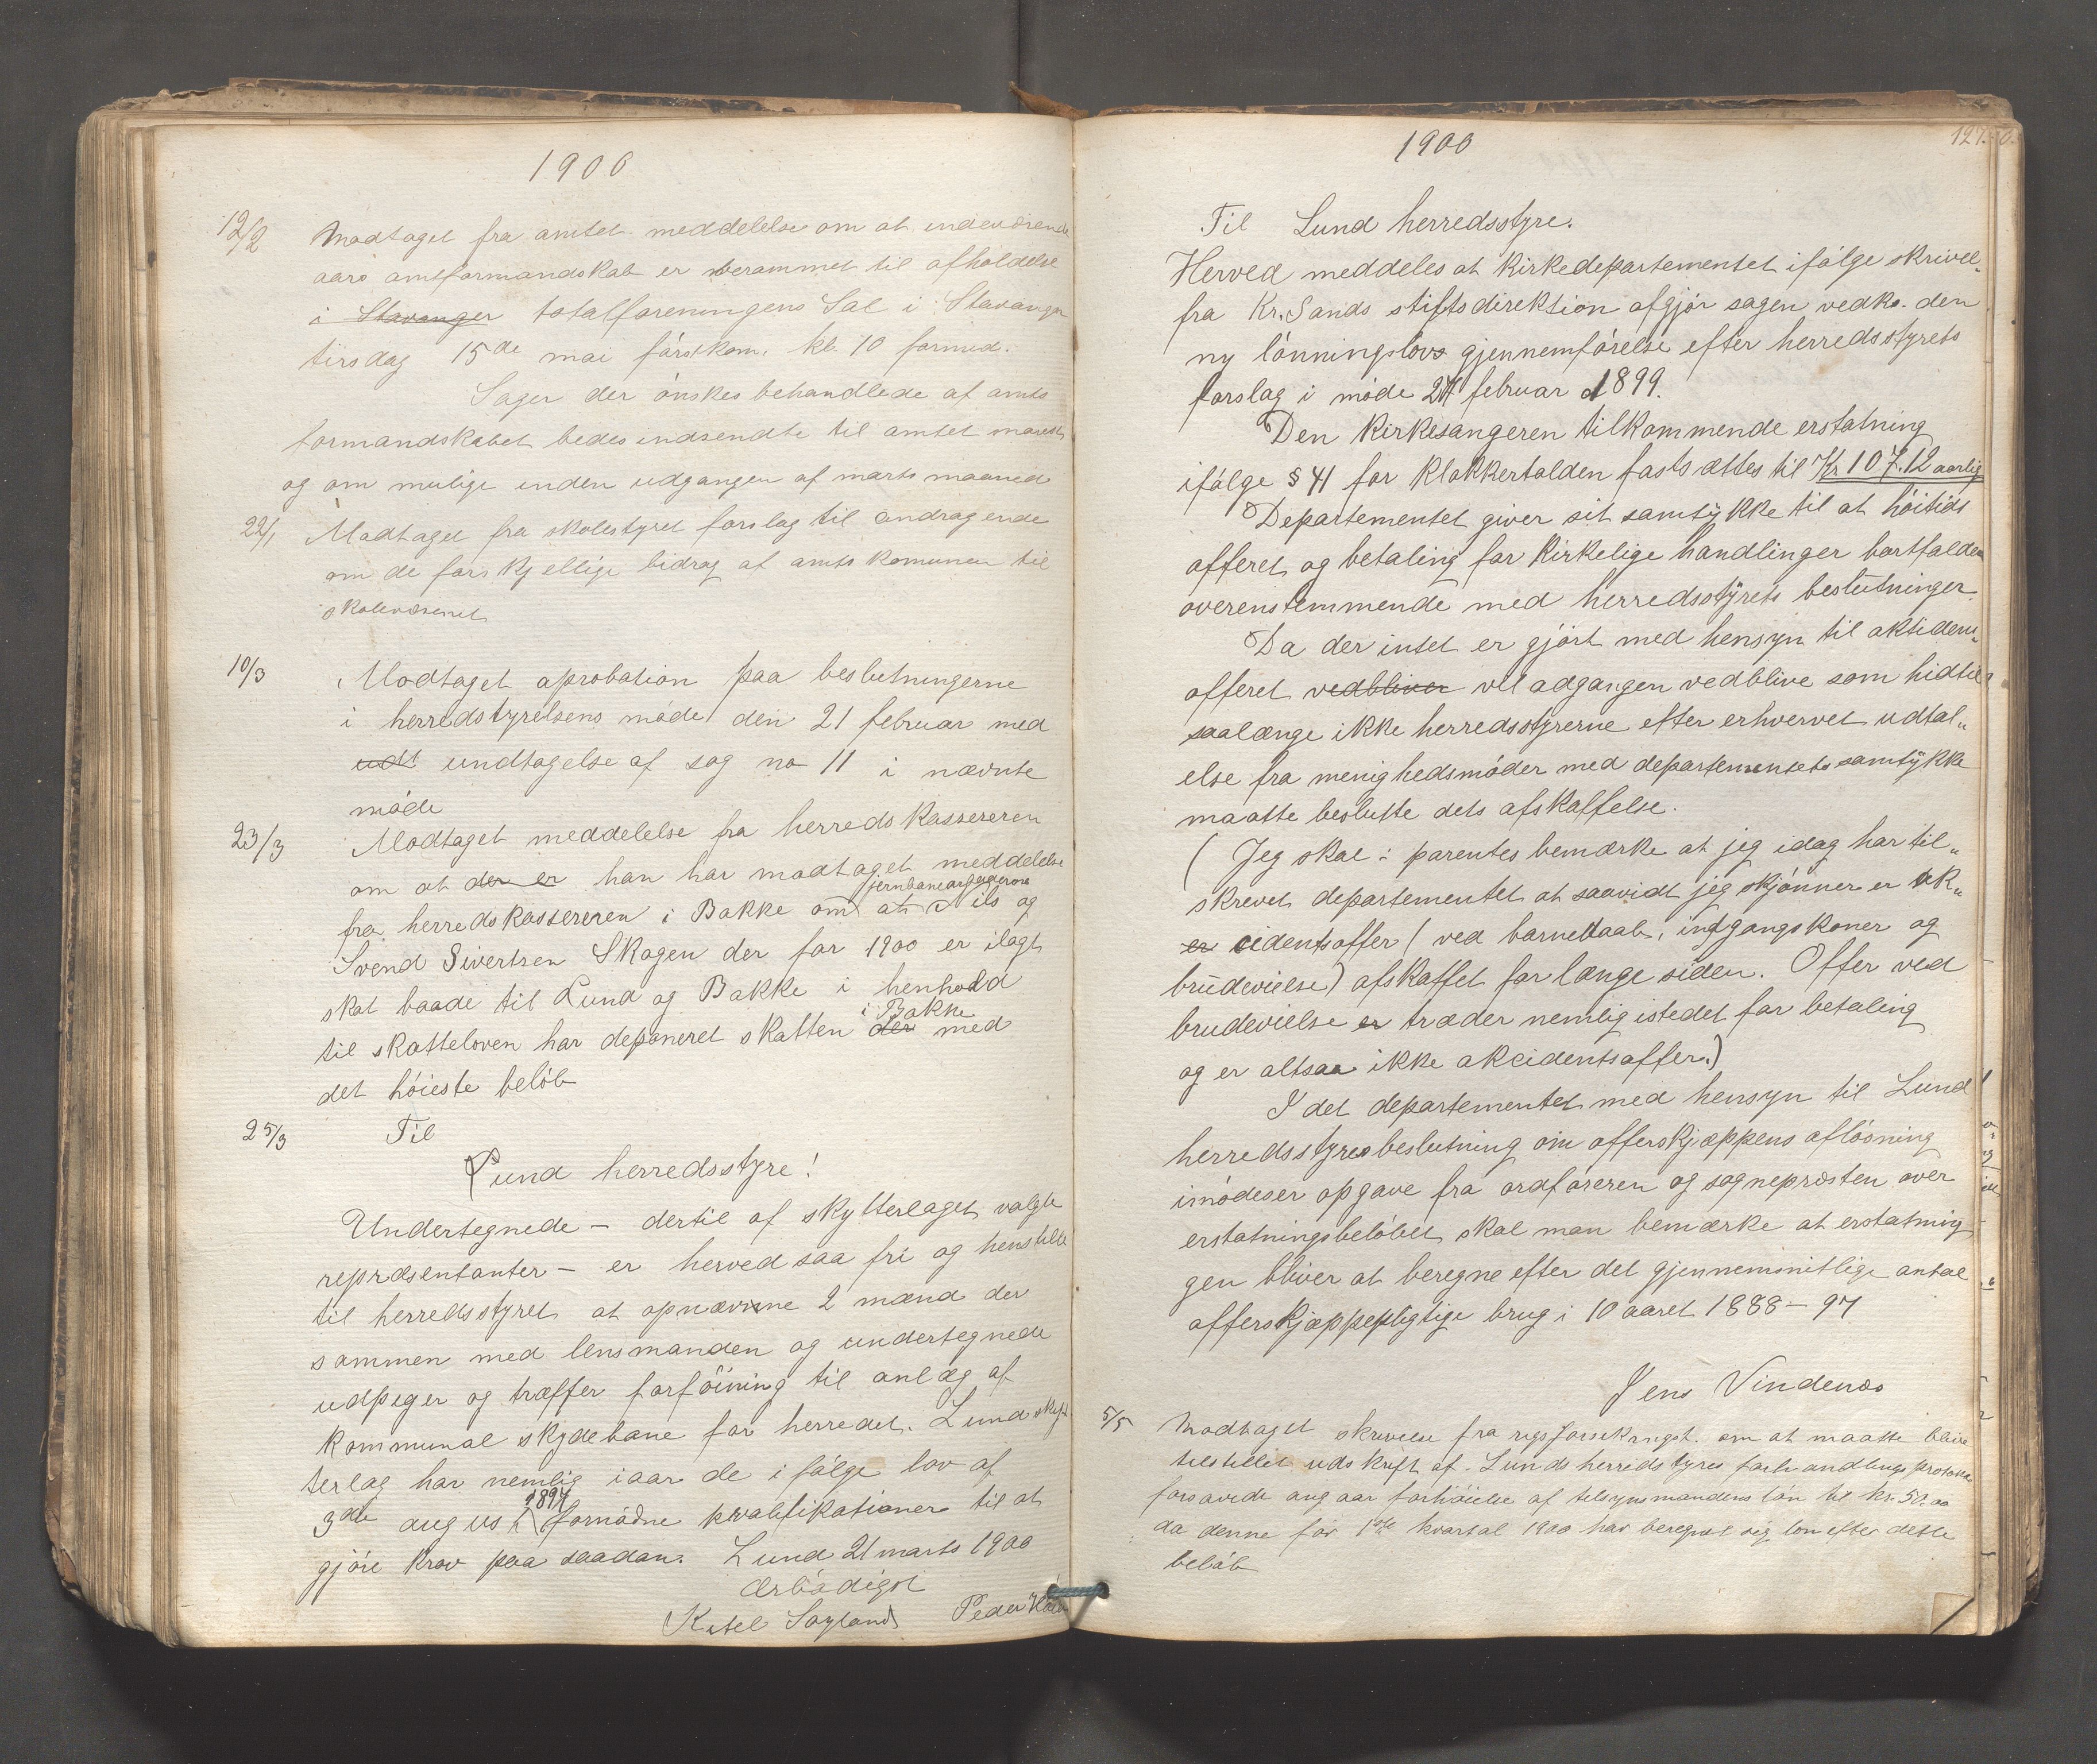 1900
12/2 Modtaget fra amtet meddelelse om at indeværende
aars amtformandskab er berammet til afholdelse
i Stavanger totalforeningens Sal i Stavanger
tirsdag 15de mai førstkom. kl. 10 formid.
Sager der ønskes behandlede af amts
formandskabet bedes indsendte til amtet snarest
og om mulige inden udgangen af marts maaned
22/1 Modtaget fra skolestyret forslag til andragende
om de forskjellige bidrag af amtskomunen til
skolevæsenet
10/3 Modtaget aprobation paa beslutningerne
i herredstyrelsens møde den 21 februar med
udt undtagelse af sag no 11 i nævnte
møde
23/3 Modtaget meddelelse fra herredskassereren
om at der er han har modtaget meddelelse
jernbanearbeiderne
fra herredskassereren i Bakke om at Nils og
Svend Sivertsen Skogen der for 1900 er ilagt
skat baade til Lund og Bakke i henhold
i Bakke
til skatteloven har deponeret skatten der med
det høieste beløb
25/3 Til
Lund herredsstyre!
Undertegnede – dertil af skytterlaget valgte
repræsentanter – er herved saa fri og henstille
til herredsstyret at opnævne 2 mænd der
sammen med lensmanden og undertegnede
udpeger og træffer forføining til anlæg af
kommunal skydebane for herredet. Lund skyt
terlag har nemlig iaar de ifølge lov af
1897
3de august fornødne kvalifikationer til at
gjøre krav paa saadan. Lund 21 marts 1900
ærbødigst
Ketel Søyland Peder
1900
127.
Til Lund herredsstyre.
Herved meddeles at kirkedepartementet ifølge skrivel„
fra Kr.Sands stiftsdirektion afgjør sagen vedk. den
ny lønningslovs gjennemførelse efter herredsstyrets
forslag i møde 27 februar 1899.
Den kirkesangeren tilkommende erstatning
ifølge § 41 for klokkertolden fastsættes til Kr 107.12 aarlig
Departementet giver sit samtykke til at høitids
offeret og betaling for kirkelige handlinger bortfalder
overenstemmende med herredsstyrets beslutninger.
Da der intet er gjort med hensyn til aktidens„
offeret vedbliver vil adgangen vedblive som hidtil
saalænge ikke herredsstyrerne efter erhvervet udtal„
else fra menighedsmøder med departementets samtykke
maatte beslutte dets afskaffelse.
(Jeg skal i parentes bemærke at jeg idag har til„
skrevet departementet at saavidt jeg skjønner er ak„
er cidentsoffer (ved barnedaab, indgangskoner og
brudevielse) afskaffet for længe siden. Offer ved
brudevielse er træder nemlig istedet for betaling
og er altsaa ikke akcidentsoffer.)
I det departementet med hensyn til Lund
herredsstyres beslutning om offerskjæppens afløsning
imødeser opgave fra ordføreren og sognepræsten over
erstatningsbeløbet skal man bemærke at erstatnin
gen bliver at beregne efter det gjennemsnitlige antal
offerskjæppepligtige brug i 10 aaret 1888–97
Jens Vindenæs
5/5 Modtaget skrivelse fra rigsforsikringst. om at maatte blive
tilstillet udskrift af Lunds herredstyres forhandlingsprotokol
forsavidt angaar forhøielse af tilsynsmandens løn til kr. 50.00
da denne for 1ste kvartal 1900 har beregnet sig løn efter dette
beløb